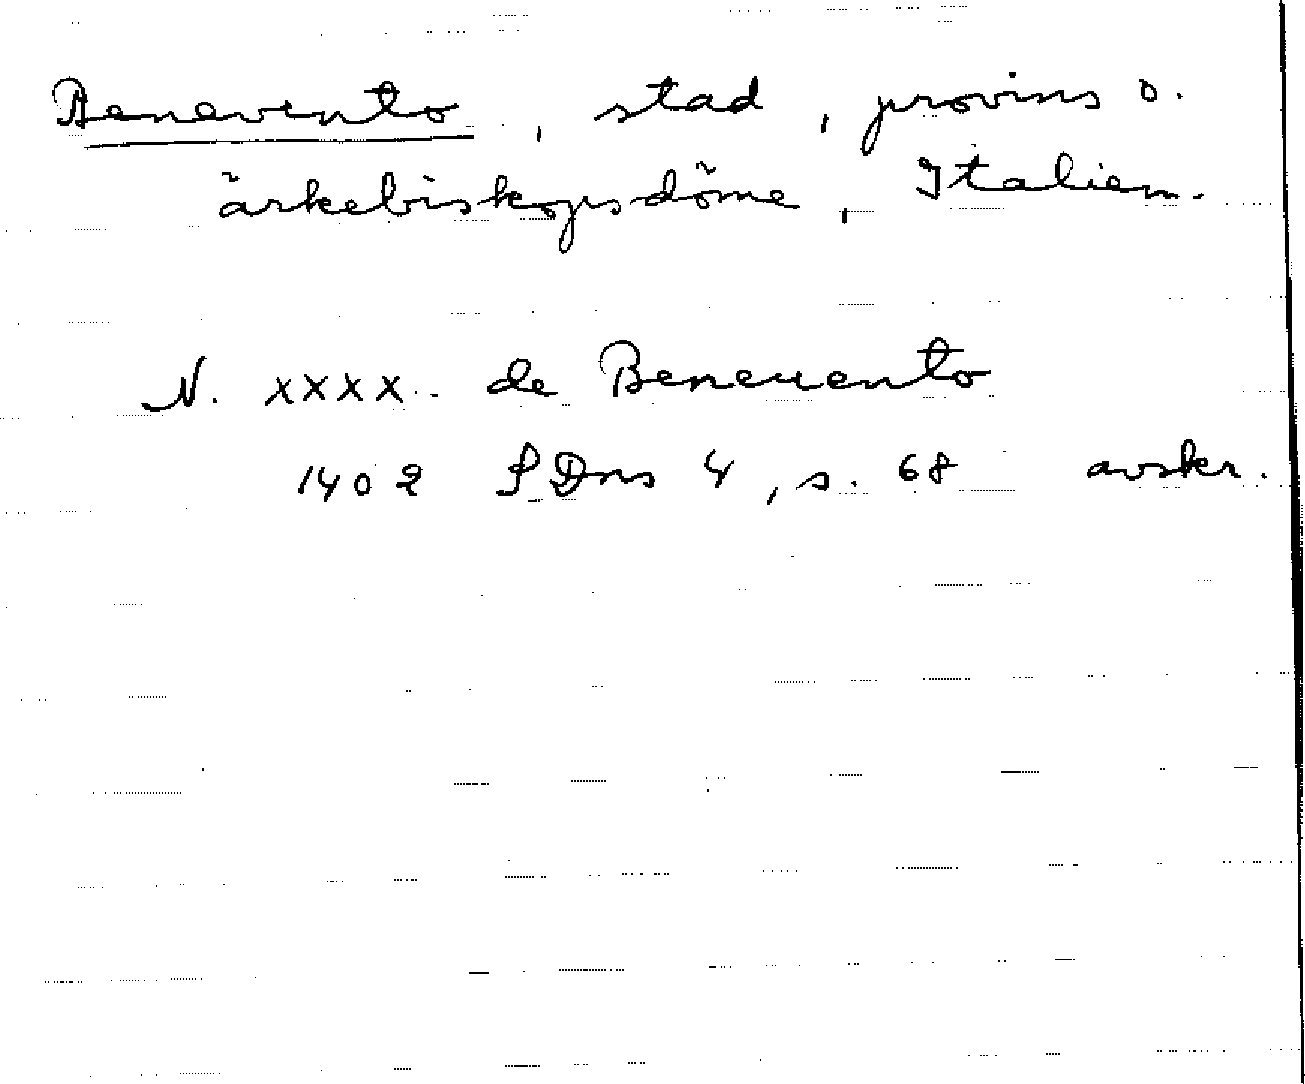 Benevento, stad, provins o.
ärkebiskopsdöme, Italien.
N. xxxx.. de Beneuento
1402 SDns 4, s. 68 avskr.